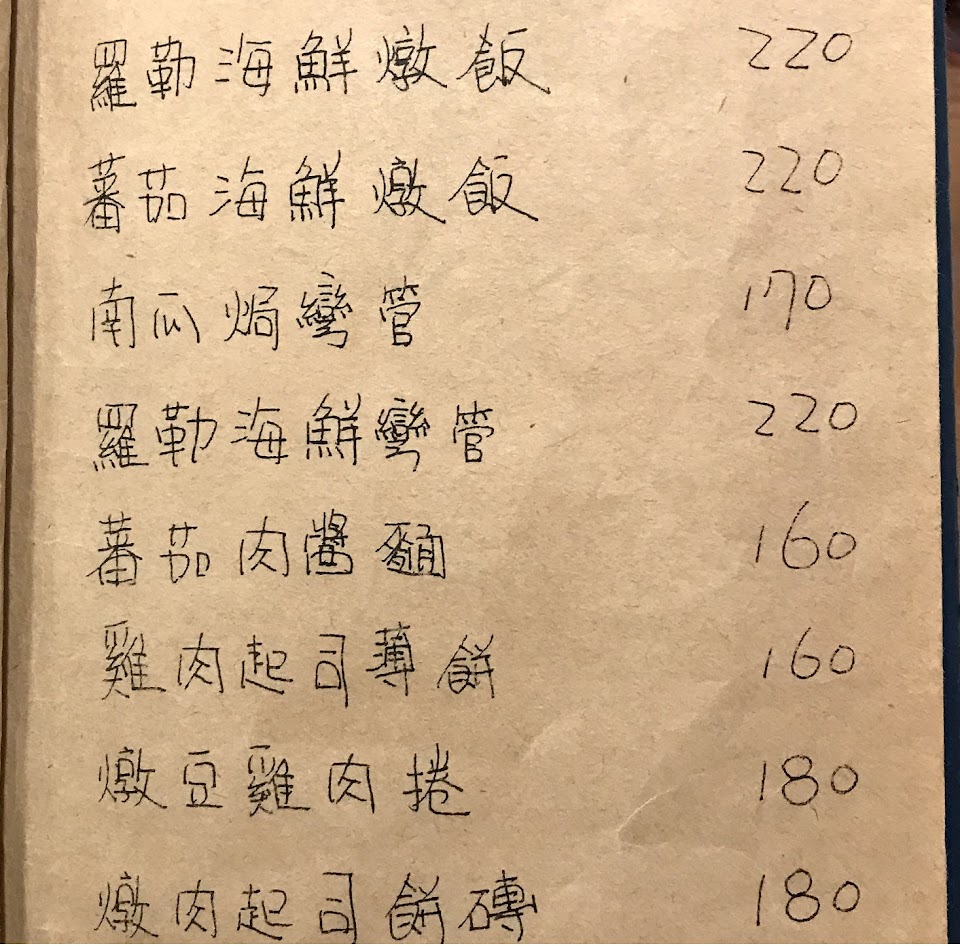 羅勒海鮮燉飯 220
蕃茄海鮮燉飯 220
南瓜焗彎管 170
羅勒海鮮彎管 220
蕃茄肉醬麵 160
雞肉起司薄餅 160
燉豆雞肉捲 180
燉肉起司餅磚 180